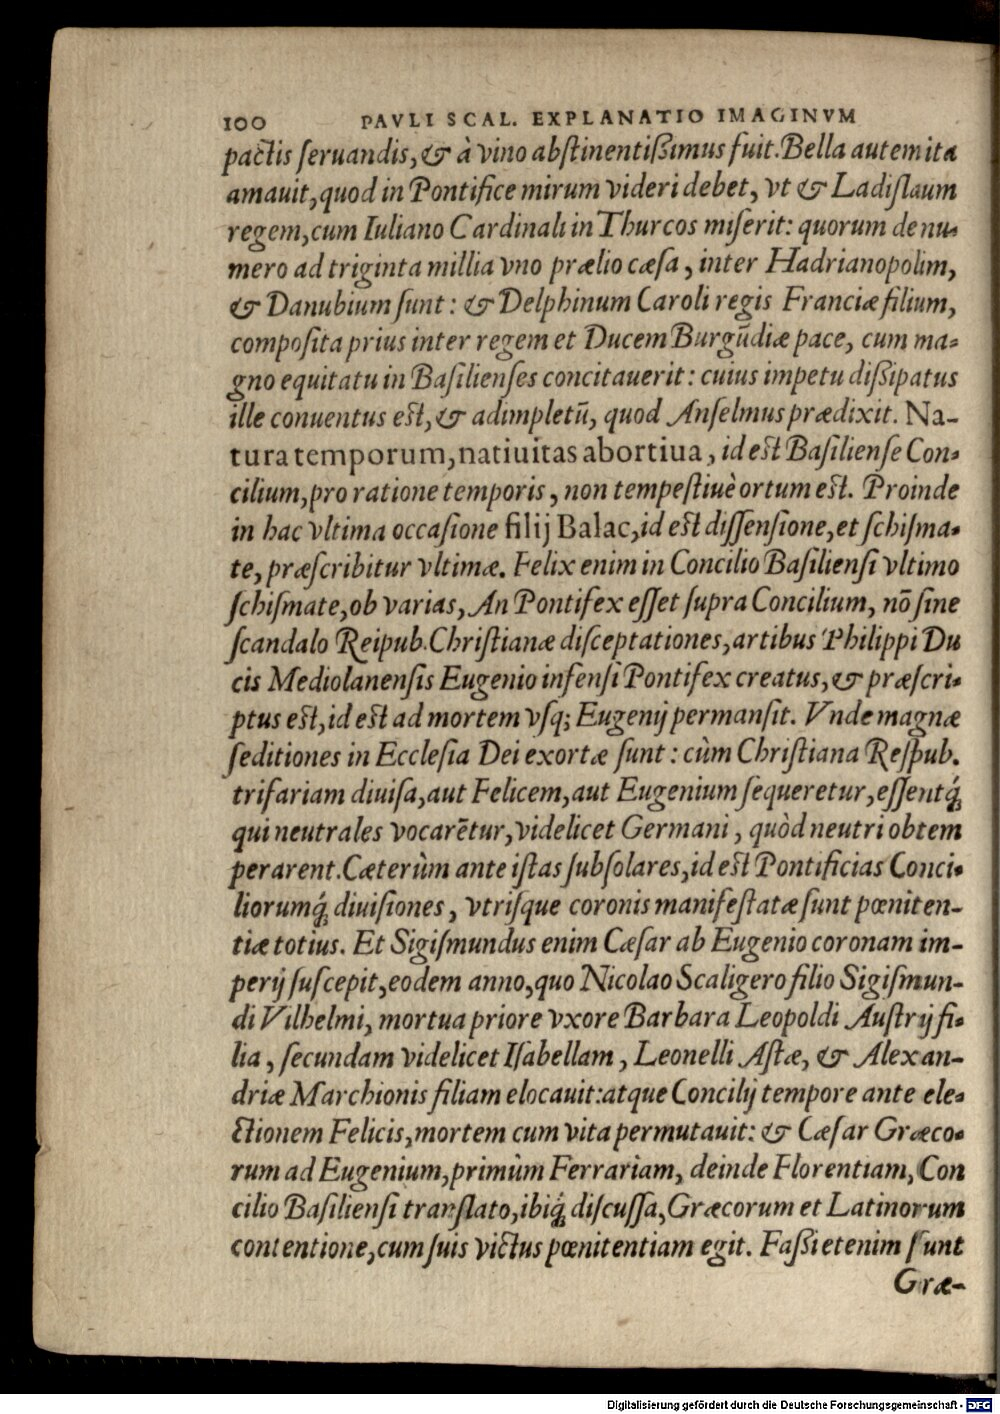 100 PAVLI SCAL. EXPLANATIO IMAGINVM
pactis ſeruandis, & à vino abſtinentißimus fuit. Bella autem ita
amauit, quod in Pontifice mirum videri debet, vt & Ladiſlaum
regem, cum Iuliano Cardinali in Thurcos miſerit: quorum de nu-
mero ad triginta millia vno prælio cæſa, inter Hadrianopolim,
& Danubium ſunt: & Delphinum Caroli regis Franciæ filium,
compoſita prius inter regem et Ducem Burgūdiæ pace, cum ma-
gno equitatu in Baſilienſes concitauerit: cuius impetu dißipatus
ille conuentus est, & adimpletū, quod Anſelmus prædixit. Na-
tura temporum, natiuitas abortiua, id est Baſilienſe Con-
cilium, pro ratione temporis, non tempeſtiuè ortum est. Proinde
in hac vltima occaſione filij Balac, id est diſſenſione, et ſchiſma-
te, præſcribitur vltimæ. Felix enim in Concilio Baſilienſi vltimo
ſchiſmate, ob varias, An Pontifex eſſet ſupra Concilium, nō ſine
ſcandalo Reipub. Chriſtianæ diſceptationes, artibus Philippi Du
cis Mediolanenſis Eugenio infenſi Pontifex creatus, & præſcri-
ptus est, id est ad mortem vſq; Eugenij permanſit. Vnde magnæ
ſeditiones in Eccleſia Dei exortæ ſunt: cùm Chriſtiana Reſpub.
trifariam diuiſa, aut Felicem, aut Eugenium ſequeretur, eſſentq́;
qui neutrales vocarētur, videlicet Germani, quòd neutri obtem
perarent. Cæterùm ante iſtas ſubſolares, id est Pontificias Conci-
liorumq́; diuiſiones, vtriſque coronis manifeſtatæ ſunt pœniten-
tiæ totius. Et Sigiſmundus enim Cæſar ab Eugenio coronam im-
perij ſuſcepit, eodem anno, quo Nicolao Scaligero filio Sigiſmun-
di Vilhelmi, mortua priore vxore Barbara Leopoldi Auſtrij fi-
lia, ſecundam videlicet Iſabellam, Leonelli Aſtæ, & Alexan-
driæ Marchionis filiam elocauit: atque Concilij tempore ante ele-
ctionem Felicis, mortem cum vita permutauit: & Cæſar Græco-
rum ad Eugenium, primùm Ferrariam, deinde Florentiam, Con
cilio Baſilienſi tranſlato, ibiq́; diſcuſſa, Græcorum et Latinorum
contentione, cum ſuis victus pœnitentiam egit. Faßi etenim ſunt
Græ-
Digitalisierung gefördert durch die Deutsche Forschungsgemeinschaft - DFG